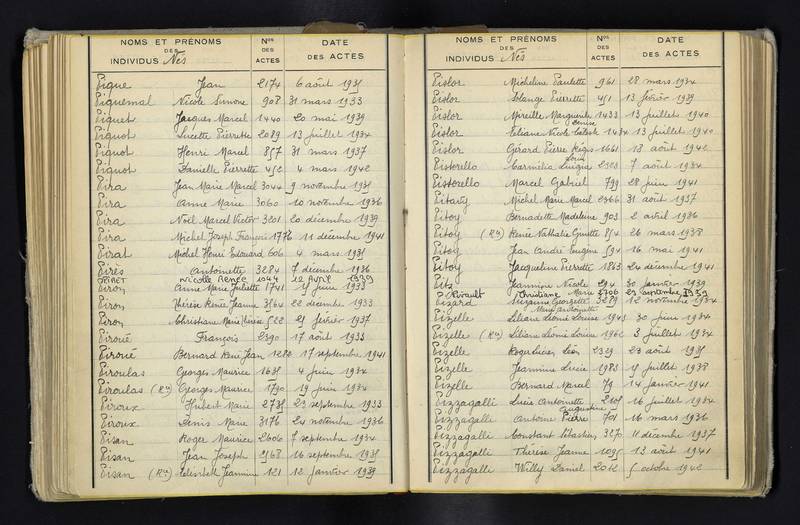 NOMS ET PRÉNOMS
DES
INDIVIDUS Nés
Nos
DES
ACTES
DATE
DES ACTES
Pique Jean 2174 6 août 1935
Piquemal Nicole Simone 908 31 mars 1933
Piquet Jacques Marcel 1440 20 mai 1939
Piquot Lucette Pierrette 2089 13 juillet 1934
Piquot Henri Marcel 857 31 mars 1937
Piquot Danielle Pierrette 452 4 mars 1942
Pira Jean Marie Marcel 3044 9 novembre 1935
Pira Anne Marie 3060 10 novembre 1936
Pira Noël Marcel Victor 3201 20 décembre 1939
Pira Michel Joseph François 1776 11 décembre 1941
Pirat Michel Henri Edouard 606 4 mars 1935
Pirès Antoinette 3284 7 décembre 1936
PIRET Nicolle Renée 1044 12 Avril 1939
Piron Anne Marie Juliette 1741 15 juin 1933
Piron Thérèse Renée Jeanne 3564 22 décembre 1933
Piron Christiane Marie Thérèse 522 25 février 1937
Piroué François 2390 17 août 1933
Piroué Bernard René Jean 1280 17 septembre 1941
Piroulas Georges Maurice 1635 4 juin 1934
Piroulas (Rn) Georges Maurice 1790 19 juin 1934
Piroux Hubert Marie 2735 23 septembre 1933
Piroux Denis Marie 3176 24 novembre 1936
Pisan Roger Maurice 2606 7 septembre 1934
Pisan Jean Joseph 2568 16 septembre 1935
Pisan (Rn) Jeannine 121 12 janvier 1939
NOMS ET PRÉNOMS
DES
INDIVIDUS Nés
Nos
DES
ACTES
DATE
DES ACTES
Pistor Micheline Paulette 961 28 mars 1934
Pistor Solange Pierrette 451 13 février 1939
Pistor Mireille Marguerite 1433 13 juillet 1940
Denise
Pistor Eliane Nicole Céleste 1434 13 juillet 1940
Pistor Gérard Pierre Régis 1661 18 août 1942
Louis
Pistorello Carmilio Luigia 2303 7 août 1934
Pistorello Marcel Gabriel 799 28 juin 1941
Pitavy Michel Marie Marcel 2366 31 août 1937
Pitoy Bernadette Madeleine 903 2 avril 1936
Pitoy (Rn) Renée Nathalie Ginette 854 26 mars 1938
Pitoy Jean André Eugène 594 16 mai 1941
Pitoy Jacqueline Pierrette 1863 24 décembre 1941
Pitz Jeannine Nicole 294 30 janvier 1939
Pivault Christiane Marie 2706 23 septembre 1939
Pizard Suzanne Georgette 3289 12 novembre 1934
Marie Antoinette
Pizelle Liliane Léonie Louise 1943 30 juin 1934
Pizelle (Rn) Liliane Léonie Louise 1962 3 juillet 1934
Pizelle Roger Lucien Léon 2329 23 août 1935
Pizelle Jeannine Lucie 1983 15 juillet 1938
Pizelle Bernard Marcel 79 14 janvier 1941
Pizzagalli Lucie Antoinette 2105 16 juillet 1934
Augustine
Pizzagalli Antoine Pierre 701 16 mars 1936
Pizzagalli Constant Sébastien 3270 11 décembre 1937
Pizzagalli Thérèse Jeanne 1095 13 août 1941
Pizzagalli Willy Daniel 2012 5 octobre 1942